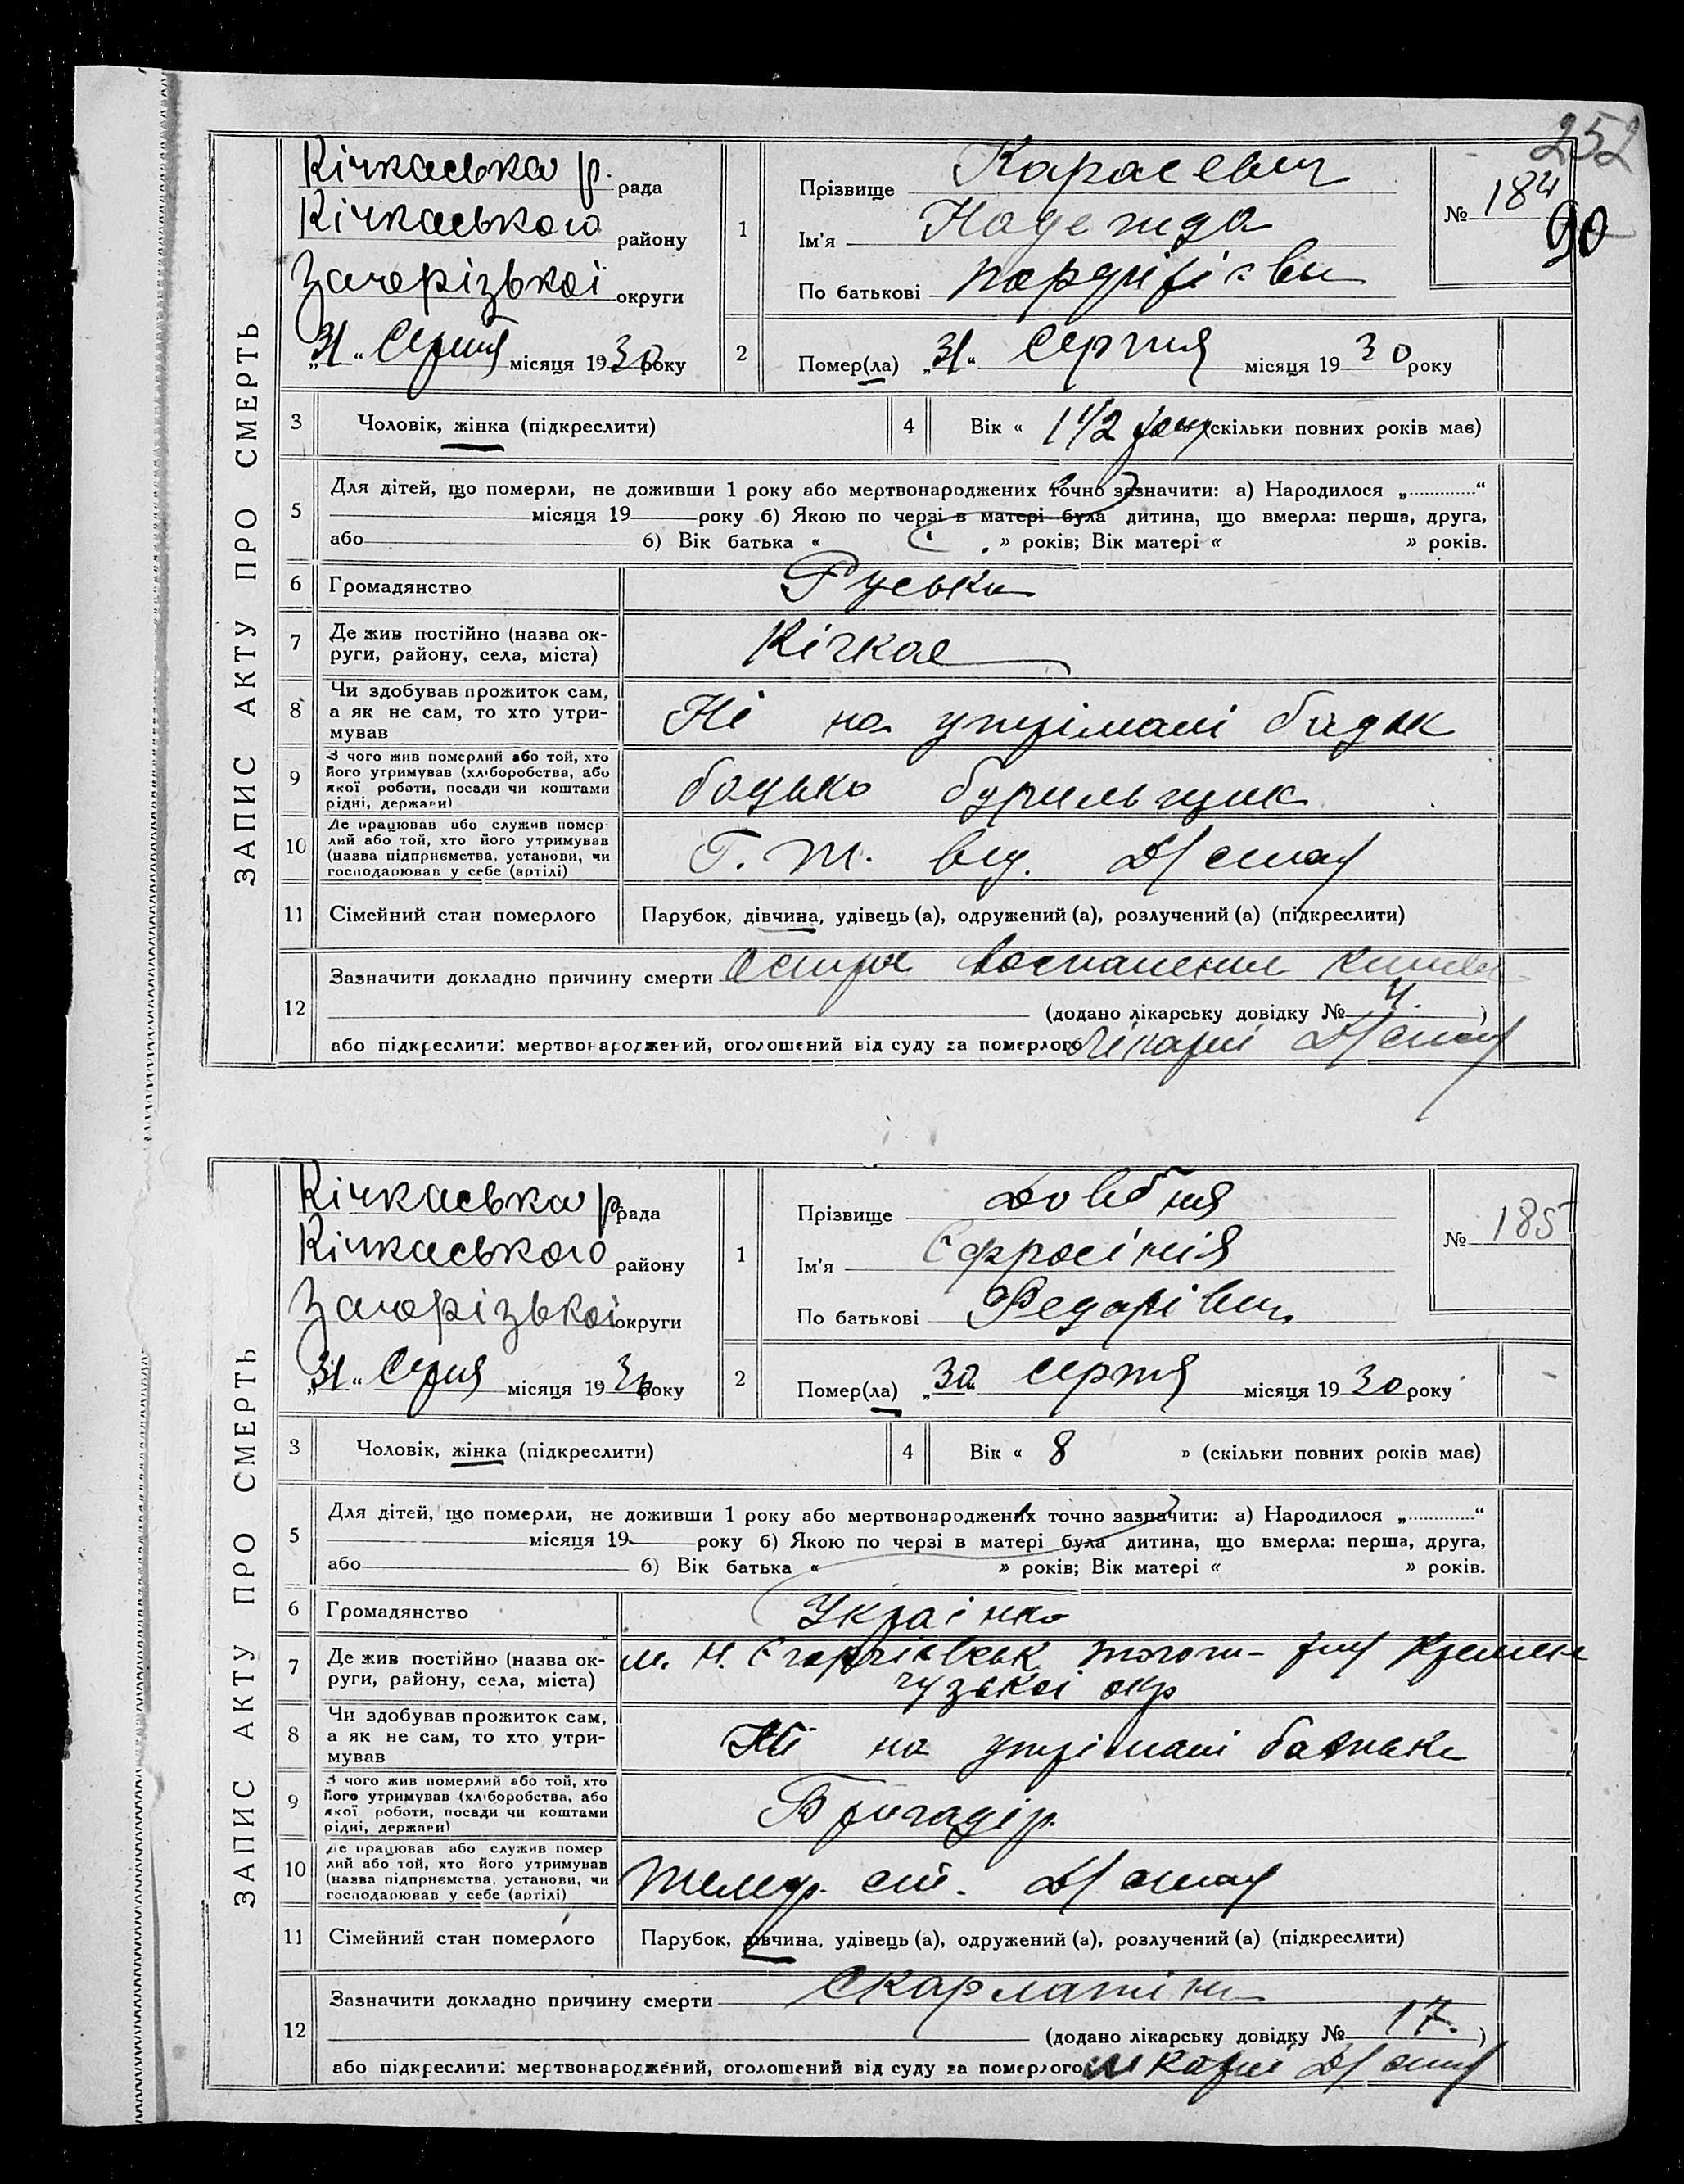 252
90
ЗАПИС АКТУ ПРО СМЕРТЬ
Кічкаська р. рада
Кічкаського району
Запорізької округи
„31“ Серпня місяця 1930 року
1
Прізвище Карасевич
Ім'я Надежда
По батькові
№ 184
2
Помер(ла) „31“ Серпня місяця 1930 року
3
Чоловік, жінка (підкреслити)
4
Вік « 1 1/2 (скільки повних років має)
5
Для дітей, що померли, не доживши 1 року або мертвонароджених точно зазначити: а) Народилося „ “
місяця 19 року б) Якою по черзі в матері була дитина, що вмерла: перша, друга,
або б) Вік батька « » років; Вік матері « » років.
6
Громадянство Руська
7
Де жив постійно (назва ок-
руги, району, села, міста)
Кічкас
8
Чи здобував прожиток сам,
а як не сам, то хто утри-
мував
Ні на утрімані
9
З чого жив померлий або той, хто
його утримував (хліборобства, або
якої роботи, посади чи коштами
рідні, держави)
бурильщик
10
Де працював або служив помер
лий або той, хто його утримував
(назва підприємства, установи, чи
господарював у себе (артілі)
Г. Т. від.
11
Сімейний стан померлого
Парубок, дівчина, удівець (а), одружений (а), розлучений (а) (підкреслити)
12
Зазначити докладно причину смерти Острое воспаление
(додано лікарську довідку № 4. )
або підкреслити: мертвонароджений, оголошений від суду за померлого
ЗАПИС АКТУ ПРО СМЕРТЬ
Кічкаська р. рада
Кічкаського району
Запорізької округи
„31“ Серпня місяця 1930 року
1
Прізвище Довбня
Ім'я Єфросінія
По батькові Федарівна
№ 185
2
Помер(ла) „30“ Серпня місяця 1930 року
3
Чоловік, жінка (підкреслити)
4
Вік « 8 » (скільки повних років має)
5
Для дітей, що померли, не доживши 1 року або мертвонароджених точно зазначити: а) Народилося „ “
місяця 19 року б) Якою по черзі в матері була дитина, що вмерла: перша, друга,
або б) Вік батька « » років; Вік матері « » років.
6
Громадянство Українка
7
Де жив постійно (назва ок-
руги, району, села, міста)
м. Н. Кремен
чузької окр
8
Чи здобував прожиток сам,
а як не сам, то хто утри-
мував
Ні на утрімані батька
9
З чого жив померлий або той, хто
його утримував (хліборобства, або
якої роботи, посади чи коштами
рідні, держави)
Бригадір.
10
Де працював або служив помер
лий або той, хто його утримував
(назва підприємства, установи, чи
господарював у себе (артілі)
11
Сімейний стан померлого
Парубок, дівчина, удівець (а), одружений (а), розлучений (а) (підкреслити)
12
Зазначити докладно причину смерти Скарлатіна
(додано лікарську довідку № 17. )
або підкреслити: мертвонароджений, оголошений від суду за померлого